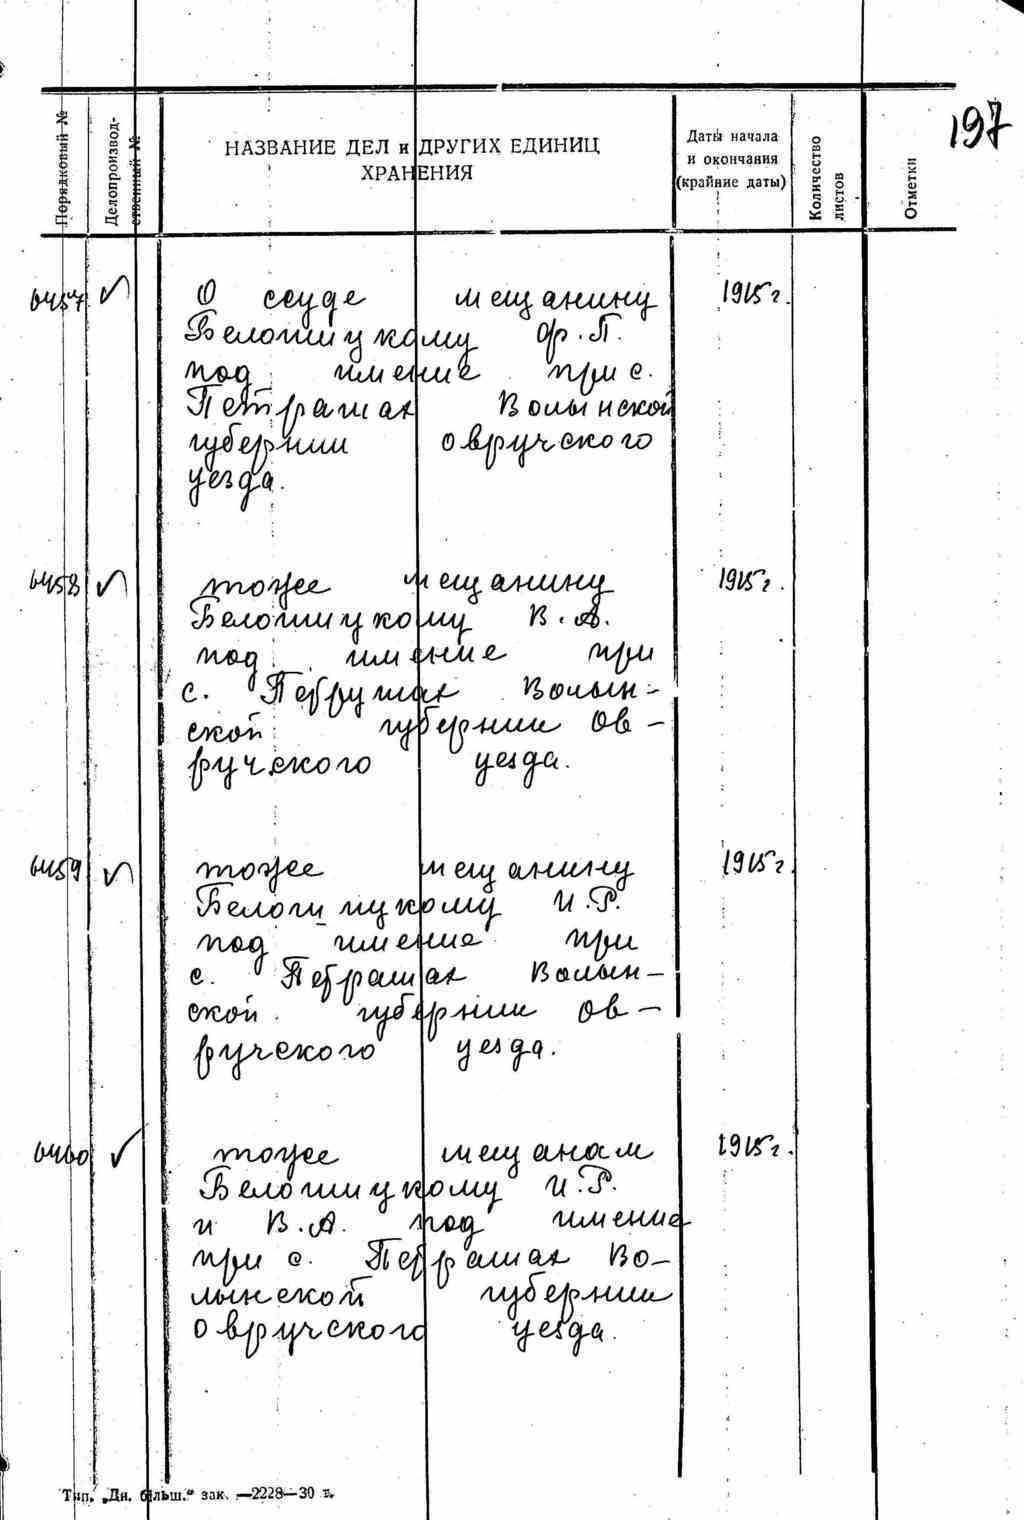 197
Порядковый №
Делопроизвод-
ственный №
НАЗВАНИЕ ДЕЛ и ДРУГИХ ЕДИНИЦ
ХРАНЕНИЯ
Даты начала
и окончания
(крайние даты)
Количество
листов
Отметки
6457 О ссуде мещанину 1915 г.
Белошицкому Ф.П.
под имение при с.
Петрашах Волынской
губернии овручского
уезда.
6458 тоже мещанину 1915 г.
Белошицкому В.А.
под имение при
с. Петрушах Волын-
ской губернии Ов-
ручского уезда.
6459 тоже мещанину 1915 г.
Белошицкому И.Р.
под имение при
с. Петрашах Волын-
ской губернии Ов-
ручского уезда.
6460 тоже мещанам 1915 г.
Белошицкому И.Р.
и В.А. под имение
при с. Петрашах Во-
лынской губернии
овручского уезда.
Тип. „Дн. більш.“ зак. —2228—30 т.